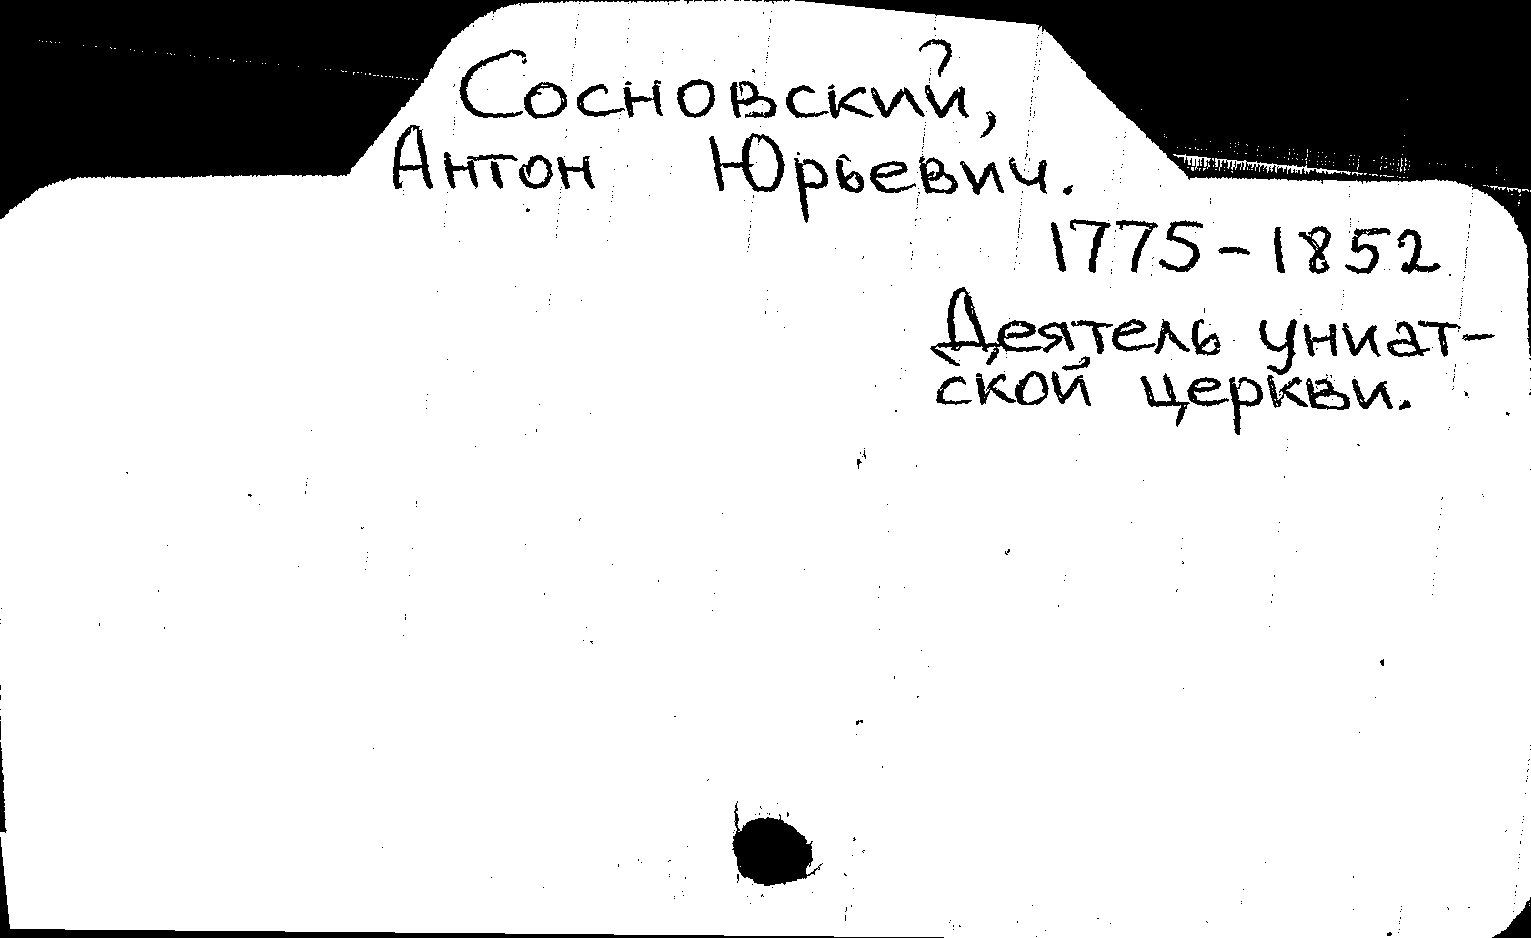 Сосновский,
Антон Юрьевич.
1775-1852
Деятель униат-
ской церкви.